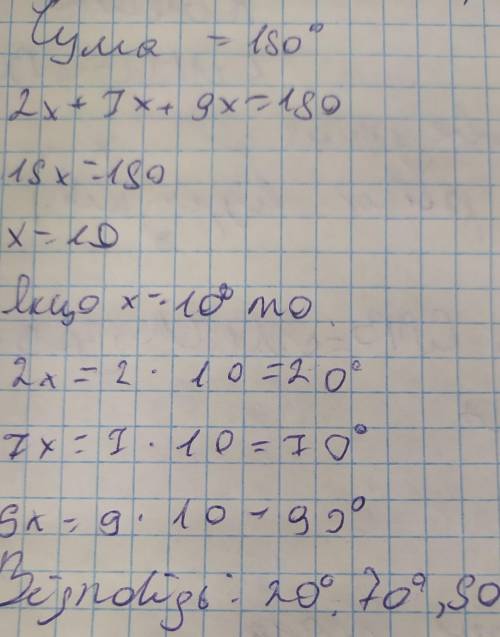 Сума = 180°
2x + 7x + 9x = 180
18x = 180
x = 10
Якщо x = 10° то
2x = 2 · 10 = 20°
7x = 7 · 10 = 70°
9x = 9 · 10 = 90°
Відповідь: 20°, 70°, 90